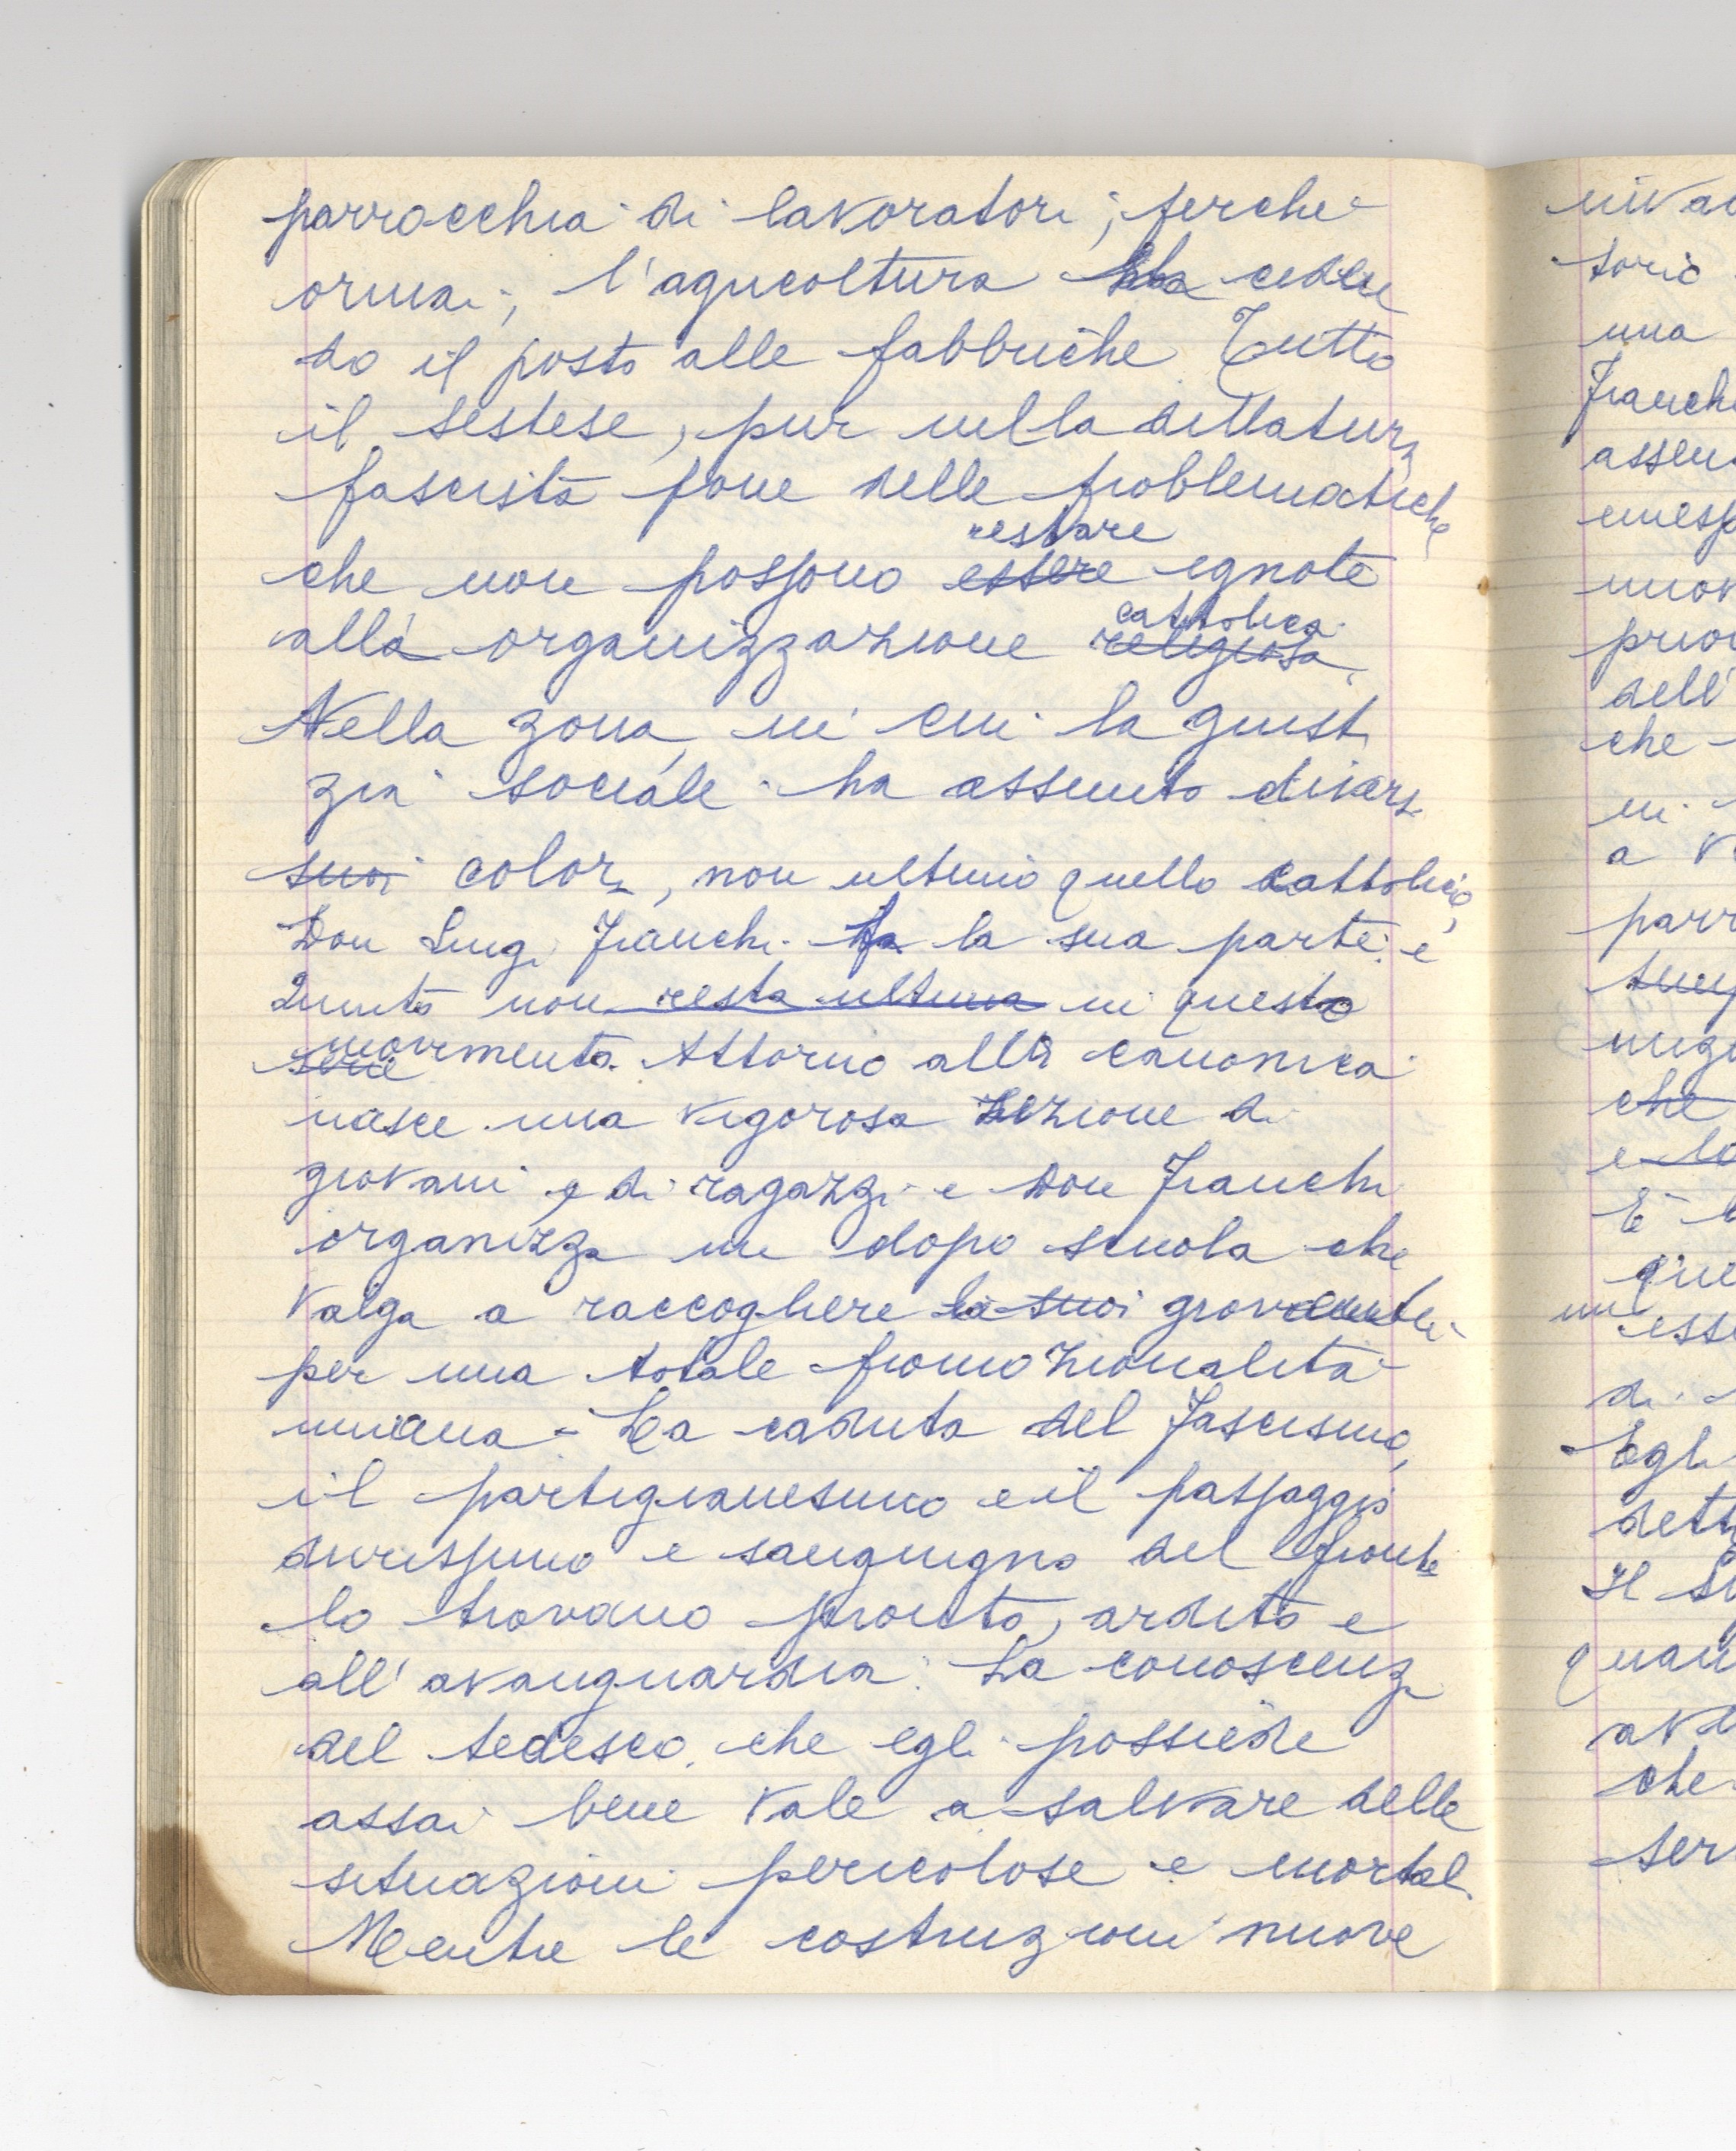 parrocchia di lavoratori; perché
ormai, l'agricoltura sta ceden
do il posto alle fabbriche. Tutto
il sestese, pur nella dittatura
fascista pone delle problematiche
restare
che non possono essere ignote
cattolica
alla organizzazione religiosa.
Nella zona, in cui la giusti
zia sociale ha assunto diversi
suoi colori, non ultimo quello cattolico,
Don Luigi Franchi fa la sua parte e
Quinto non resta ultima in questo
movimento. Attorno alla canonica
serie
nasce una vigorosa sezione di
giovani e di ragazzi e Don Franchi
organizza un dopo scuola che
valga a raccogliere i suoi
per una totale promozionalità
umana - La caduta del Fascismo,
il partigianesimo e il passaggio
durissimo e sanguigno del fronte
lo trovano pronto, ardito e
all'avanguardia. La conoscenza
del tedesco che egli possiede
assai bene vale a salvare delle
situazioni pericolose e mortali.
Mentre le costruzioni nuove
una
Franchi
dell'
che
a
parr
che
di
Egli
Il
che